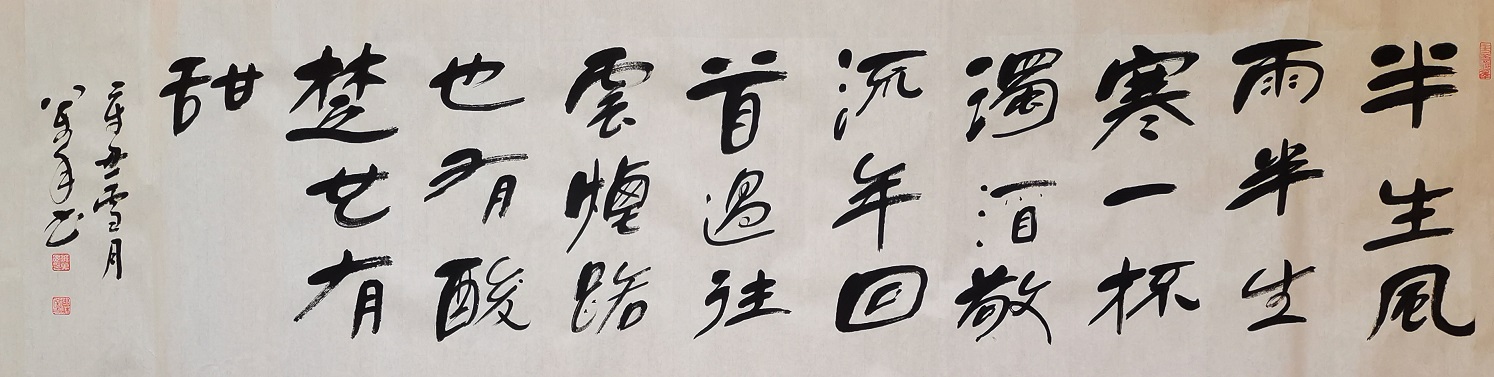 半生風
雨半生
寒一杯
濁酒敬
流年回
首過往
雲煙路
也有酸
楚也有
甜
辛丑雪月
书